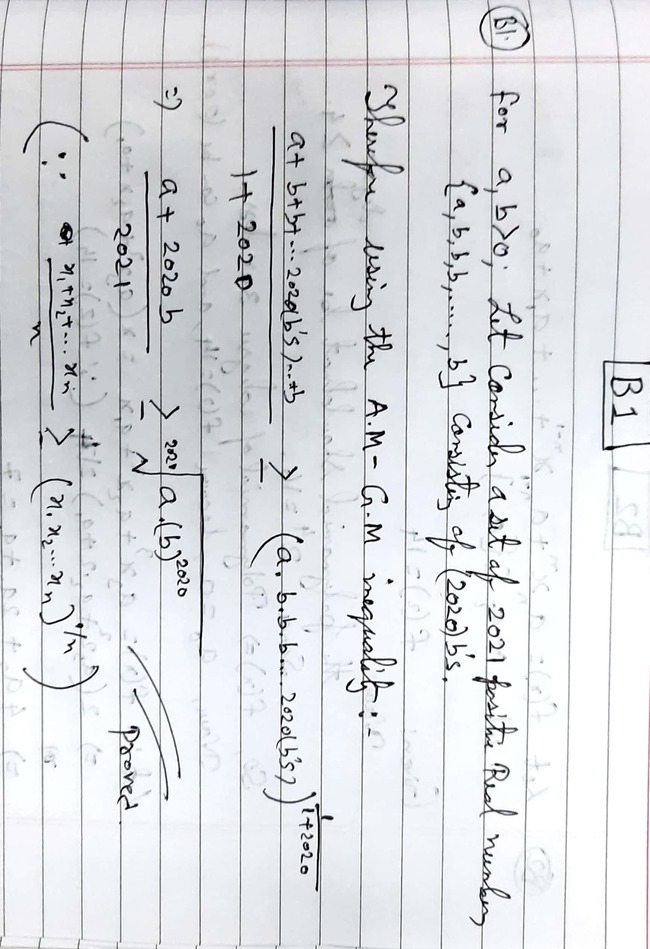 B1
B1. For a, b > 0; Let Consider a set of 2021 positive Real numbers
{a, b, b, b, ...., b} Consisting of (2020) b's.
Therefore using the A.M - G.M inequality :-
a + b + b + ... 2020(b's) ... + b / 1 + 2020 ≥ (a. b. b. b. b ... 2020(b's))^1/1+2020
=> a + 2020b / 2021 ≥ ²⁰²¹√a.(b)^2020
Proved.
(∵ x₁ + x₂ + ... xₙ / n ≥ (x₁ x₂ ... xₙ)^1/n)